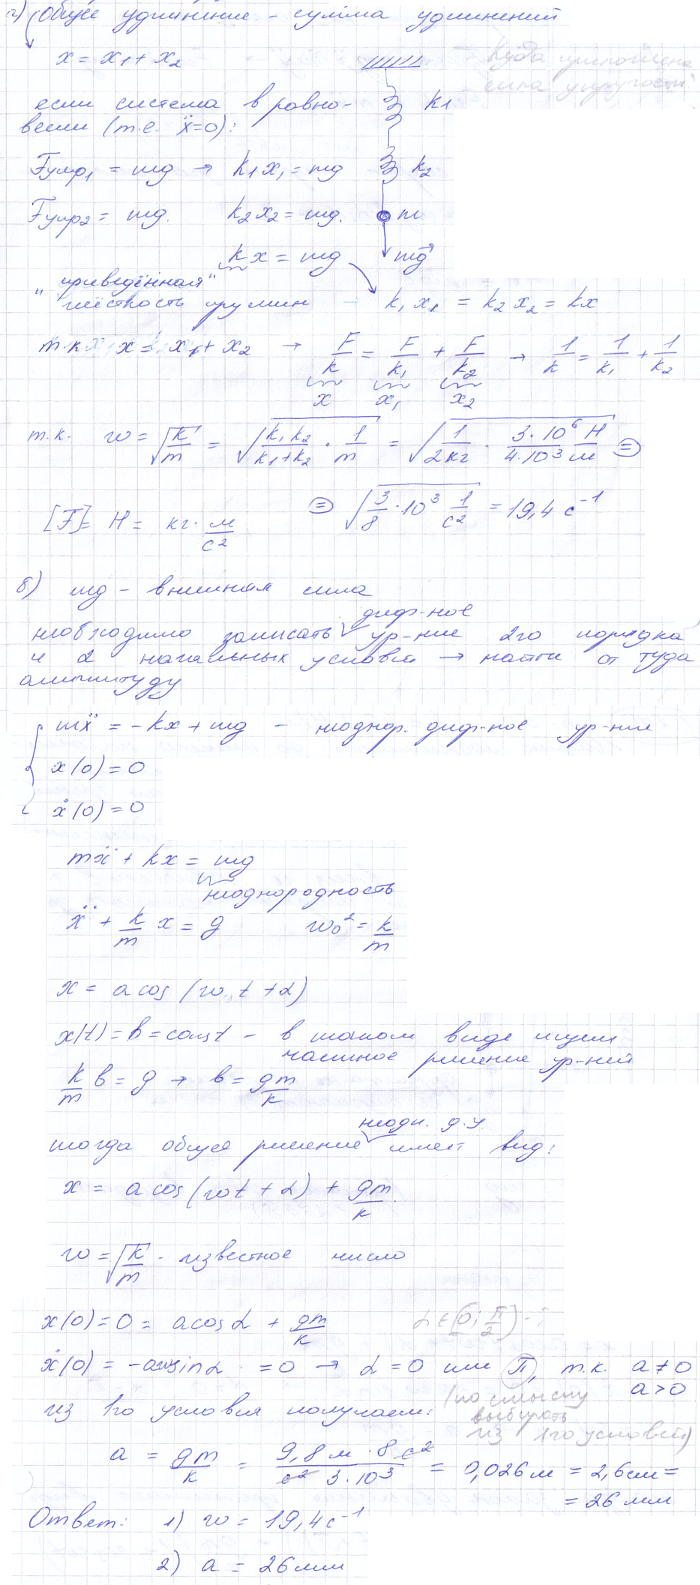 2) Общее удлинение - сумма удлинений
x = x₁ + x₂
куда приложена
сила упругости
если система в равно-
весии (т.е. ẍ=0):
k₁
Fупр₁ = mg → k₁x₁ = mg
k₂
Fупр₂ = mg. k₂x₂ = mg.
m
kx = mg
mg
"приведённая"
жёсткость пружин
k₁x₁ = k₂x₂ = kx
т.к. x = x₁ + x₂ → F/k = F/k₁ + F/k₂ → 1/k = 1/k₁ + 1/k₂
x x₁ x₂
т.к. ω = √(k/m) = √(k₁k₂/(k₁+k₂) · 1/m) = √(1/2кг · 3·10⁶ Н/4·10³ м) =
= √(3/8 · 10³ 1/с²) = 19,4 с⁻¹
[F] = Н = кг · м/с²
б) mg - внешняя сила
диф-ное
необходимо записать ур-ние 2го порядка
и 2 начальных условия → найти от туда
амплитуду
mẍ = -kx + mg - неоднор. диф-ное ур-ние
x(0) = 0
ẋ(0) = 0
mẍ + kx = mg
неоднородность
ẍ + k/m x = g ω₀² = k/m
x = a cos (ω₀t + α)
x(t) = b = const - в таком виде ищем
частное решение ур-ней
k/m b = g → b = gm/k
неодн. д.у.
тогда общее решение имеет вид:
x = a cos(ωt + α) + gm/k
ω = √(k/m) - известное число
x(0) = 0 = a cos α + gm/k
α ∈ [0; π/2)
ẋ(0) = -aω sin α = 0 → α = 0 или π, т.к. a ≠ 0
a > 0
(по смыслу
выбирать
из 1го условия)
из 1го условия получаем:
a = gm/k = 9,8 м · 8 с²/с² 3·10³ = 0,026 м = 2,6 см =
= 26 мм
Ответ: 1) ω = 19,4 с⁻¹
2) a = 26 мм